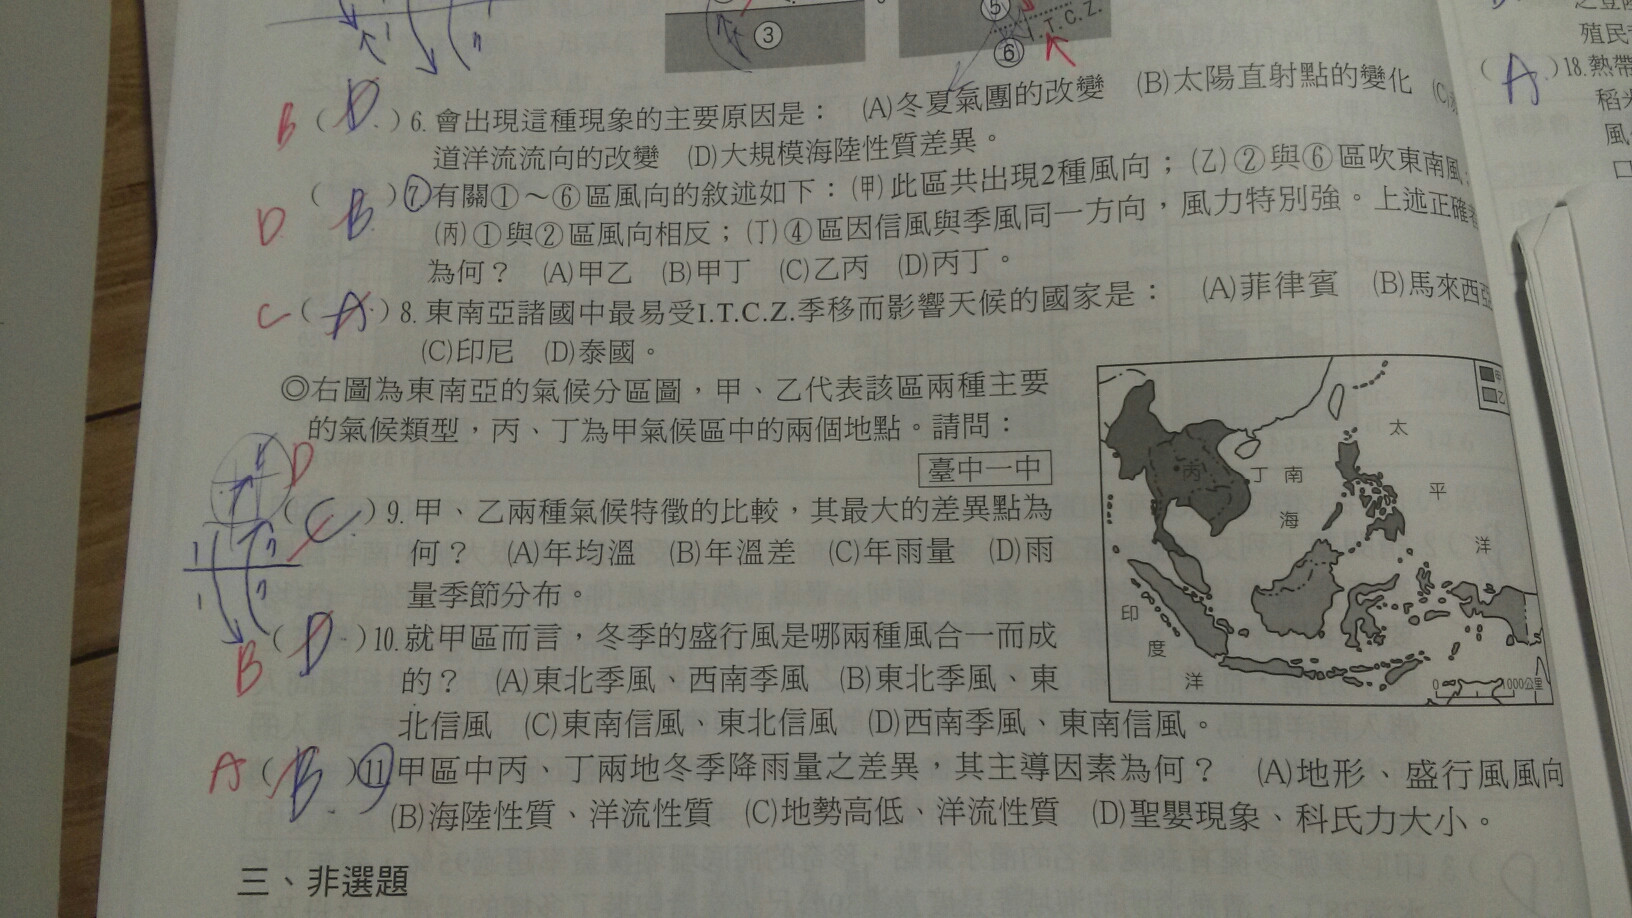 ③
⑤
I.T.C.Z.
⑥
B ( D ) 6. 會出現這種現象的主要原因是： (A)冬夏氣團的改變 (B)太陽直射點的變化 (C)
道洋流流向的改變 (D)大規模海陸性質差異。
D ( B ) ⑦ 有關①～⑥區風向的敘述如下：(甲)此區共出現2種風向；(乙)②與⑥區吹東南風；
(丙)①與②區風向相反；(丁)④區因信風與季風同一方向，風力特別強。上述正確者
為何？ (A)甲乙 (B)甲丁 (C)乙丙 (D)丙丁。
C ( A ) 8. 東南亞諸國中最易受I.T.C.Z.季移而影響天候的國家是： (A)菲律賓 (B)馬來西亞
(C)印尼 (D)泰國。
◎右圖為東南亞的氣候分區圖，甲、乙代表該區兩種主要
的氣候類型，丙、丁為甲氣候區中的兩個地點。請問：
臺中一中
D ( C ) 9. 甲、乙兩種氣候特徵的比較，其最大的差異點為
何？ (A)年均溫 (B)年溫差 (C)年雨量 (D)雨
量季節分布。
B ( D ) 10. 就甲區而言，冬季的盛行風是哪兩種風合一而成
的？ (A)東北季風、西南季風 (B)東北季風、東
北信風 (C)東南信風、東北信風 (D)西南季風、東南信風。
A ( B ) ⑪ 甲區中丙、丁兩地冬季降雨量之差異，其主導因素為何？ (A)地形、盛行風風向
(B)海陸性質、洋流性質 (C)地勢高低、洋流性質 (D)聖嬰現象、科氏力大小。
三、非選題
甲
乙
丙
丁
南
海
太
平
洋
印
度
洋
0 1000公里
殖民
( A ) 18. 熱帶
稻米
風